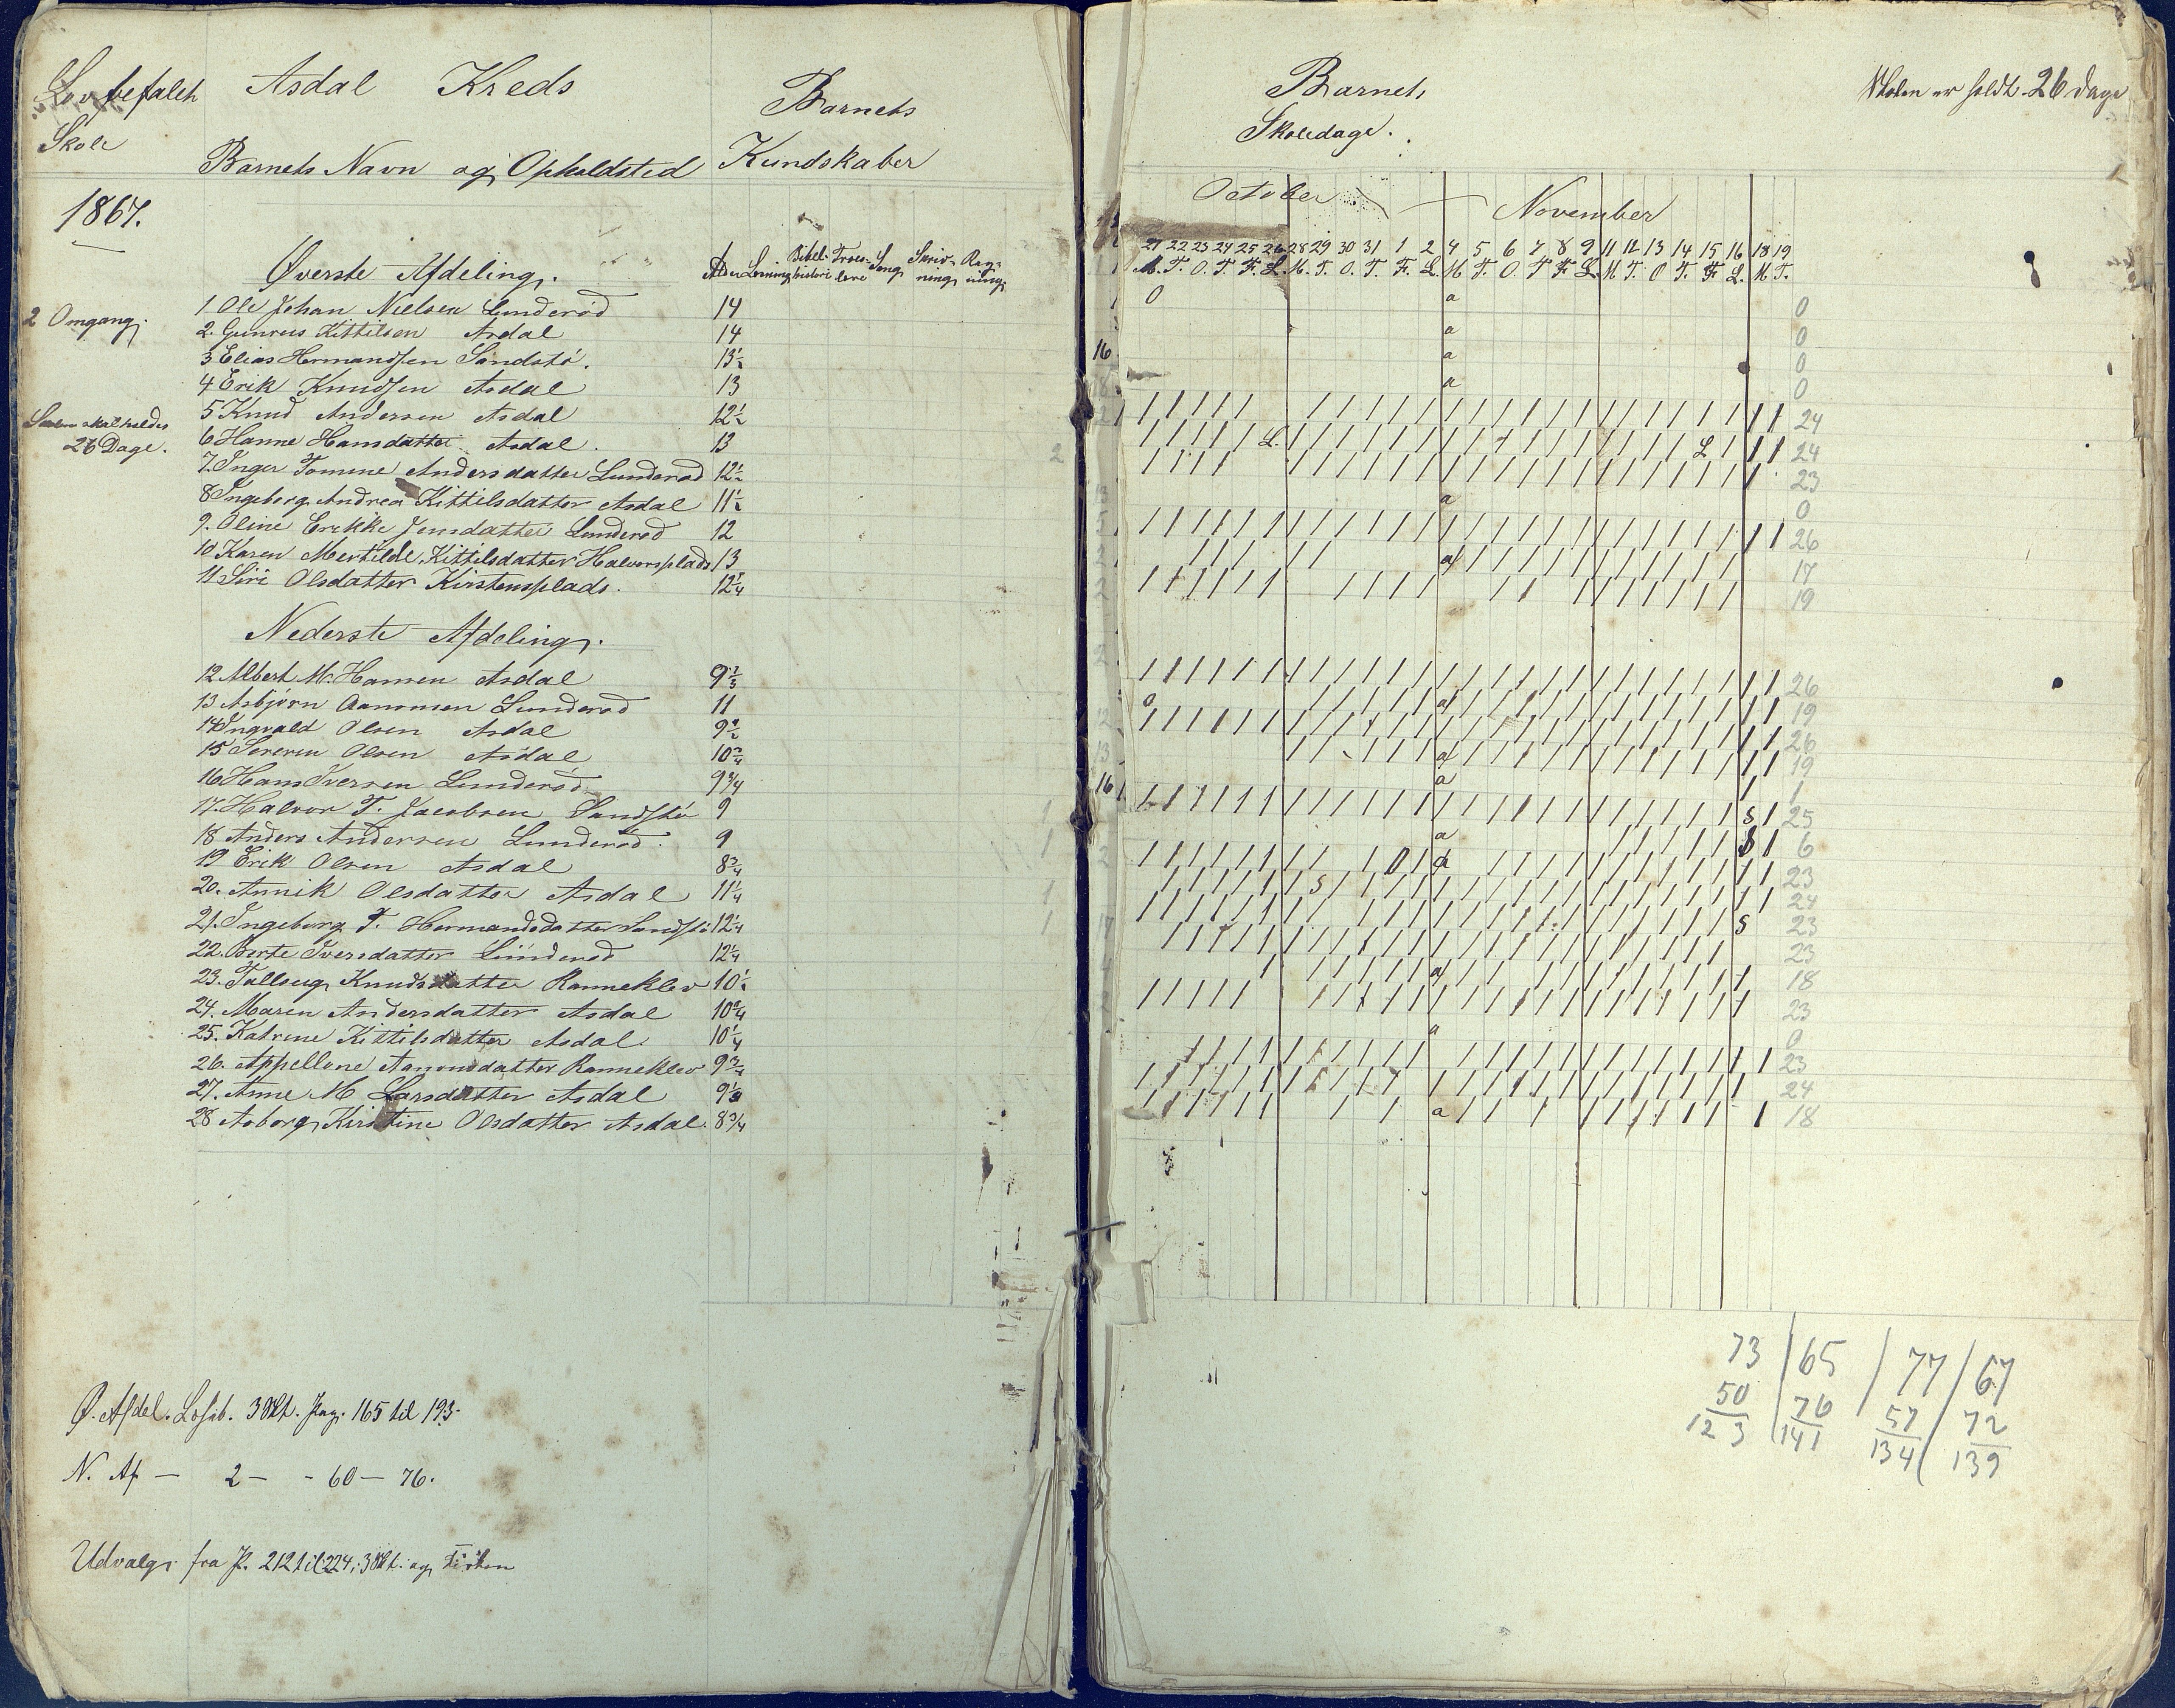 Lovbefalet
Skole
Asdal Kreds
Barnets Navn og Opholdsted
Barnets
Kundskaber
1867.
Øverste Afdeling.
Alder Læsning Bibelhistorie Troeslære Sang Skrivning Regning
2 Omgang.
1 Ole Johan Nielsen Lunderød 14
2. Gunreus Kittilsen Asdal 14
3 Elias Hermandsen Sandstø. 13½
4 Erik Knudsen Asdal 13
Skolen skal holdes
26 Dage.
5 Knud Andersen Asdal 12½
6 Hanne Hansdatter Asdal. 13
7. Inger Tomine Andersdatter Lunderød 12½
8 Ingeborg Andrea Kittilsdatter Asdal 11½
9. Oline Erikke Jensdatter Lunderød 12
10 Karen Mertilde Kittilsdatter Halvorsplads 13
11 Siri Olsdatter Kirstensplads. 12¼
Nederste Afdeling.
12 Albert M. Hansen Asdal 9⅓
13 Asbjørn Aanonsen Lunderød 11
14 Ingvald Olsen Asdal 9½
15 Severin Olsen Asdal 10¾
16 Hans Iversen Lunderød 9¾
17. Halvor T. Jacobsen Sandstø 9
18 Anders Andersen Lunderød. 9
19 Erik Olsen Asdal 8¾
20. Annik Olsdatter Asdal 11¼
21. Ingeborg T. Hermandsdatter Sandstø 12¼
22. Berte Iversdatter Lunderød 12¼
23. Tallaug Knudsdatter Ranneklev 10½
24. Maren Andersdatter Asdal 10¾
25. Katrine Kittilsdatter Asdal 10¼
26. Appellone Aanonsdatter Ranneklev 9¾
27. Anne M Larsdatter Asdal 9⅓
28 Asborg Kirstine Olsdatter Asdal. 8¾
Ø. Afdel. Læseb. 3 Skt. Pag. 165 til 193.
N. Af — 2 — - 60 — 76.
Udvalg fra P. 212 til 224, 3 Skt. og
Barnets
Skoledage.
Skolen er holdt 26 Dage
October — November
21 22 23 24 25 26 28 29 30 31 1 2 4 5 6 7 8 9 11 12 13 14 15 16 18 19
M. T. O. T. F. L. M. T. O. T. F. L. M T. O. T F L M T. O T. F L. M. T.
0 a 0
a 0
a 0
a 0
/ / / / / / / / / / / / / / / / / / / / / / / / 24
/ / / / / L. / / / / / / / / / / / / / / / / L / / / 24
/ / / / / / / / / / / / / / / / / / / / / / / 23
a 0
/ / / / / / / / / / / / / / / / / / / / / / / / / / 26
/ / / / / a/ / / / / / / / / / / / 17
/ / / / / / / / / / / / / / / / / / / 19
/ / / / / / / / / / / / / / / / / / / / / / / / / / 26
0 / / / / / a/ / / / / / / / / / / / / / 19
/ / / / / / / / / / / / / / / / / / / / / / / / / / 26
/ / / / / a/ / / / / / / / / / / / / / 19
a / 1
/ / / / / / / / / / / / / / / / / / / / / / / / s / 25
a / / / / / s / 6
/ / / / / / / / / 0 / a / / / / / / / / / / / / 23
/ / / / / / s / / / / / / / / / / / / / / / / / / 24
/ / / / / / / / / / / / / / / / / / / / / / / s 23
/ / / / / / / / / / / / / / / / / / / / / / / 23
/ / / / / / a/ / / / / / / / / / / / 18
/ / / / / / / / / / / / / / / / / / / / / / / 23
a 0
/ / / / / / / / / / / / / / / / / / / / / / / 23
/ / / / / / / / / / / / / / / / / / / / / / / / 24
/ / / / / / / / a / / / / / / / / / / 18
73 / 65 / 77 / 67
50 / 76 / 57 / 72
123 / 141 / 134 / 139